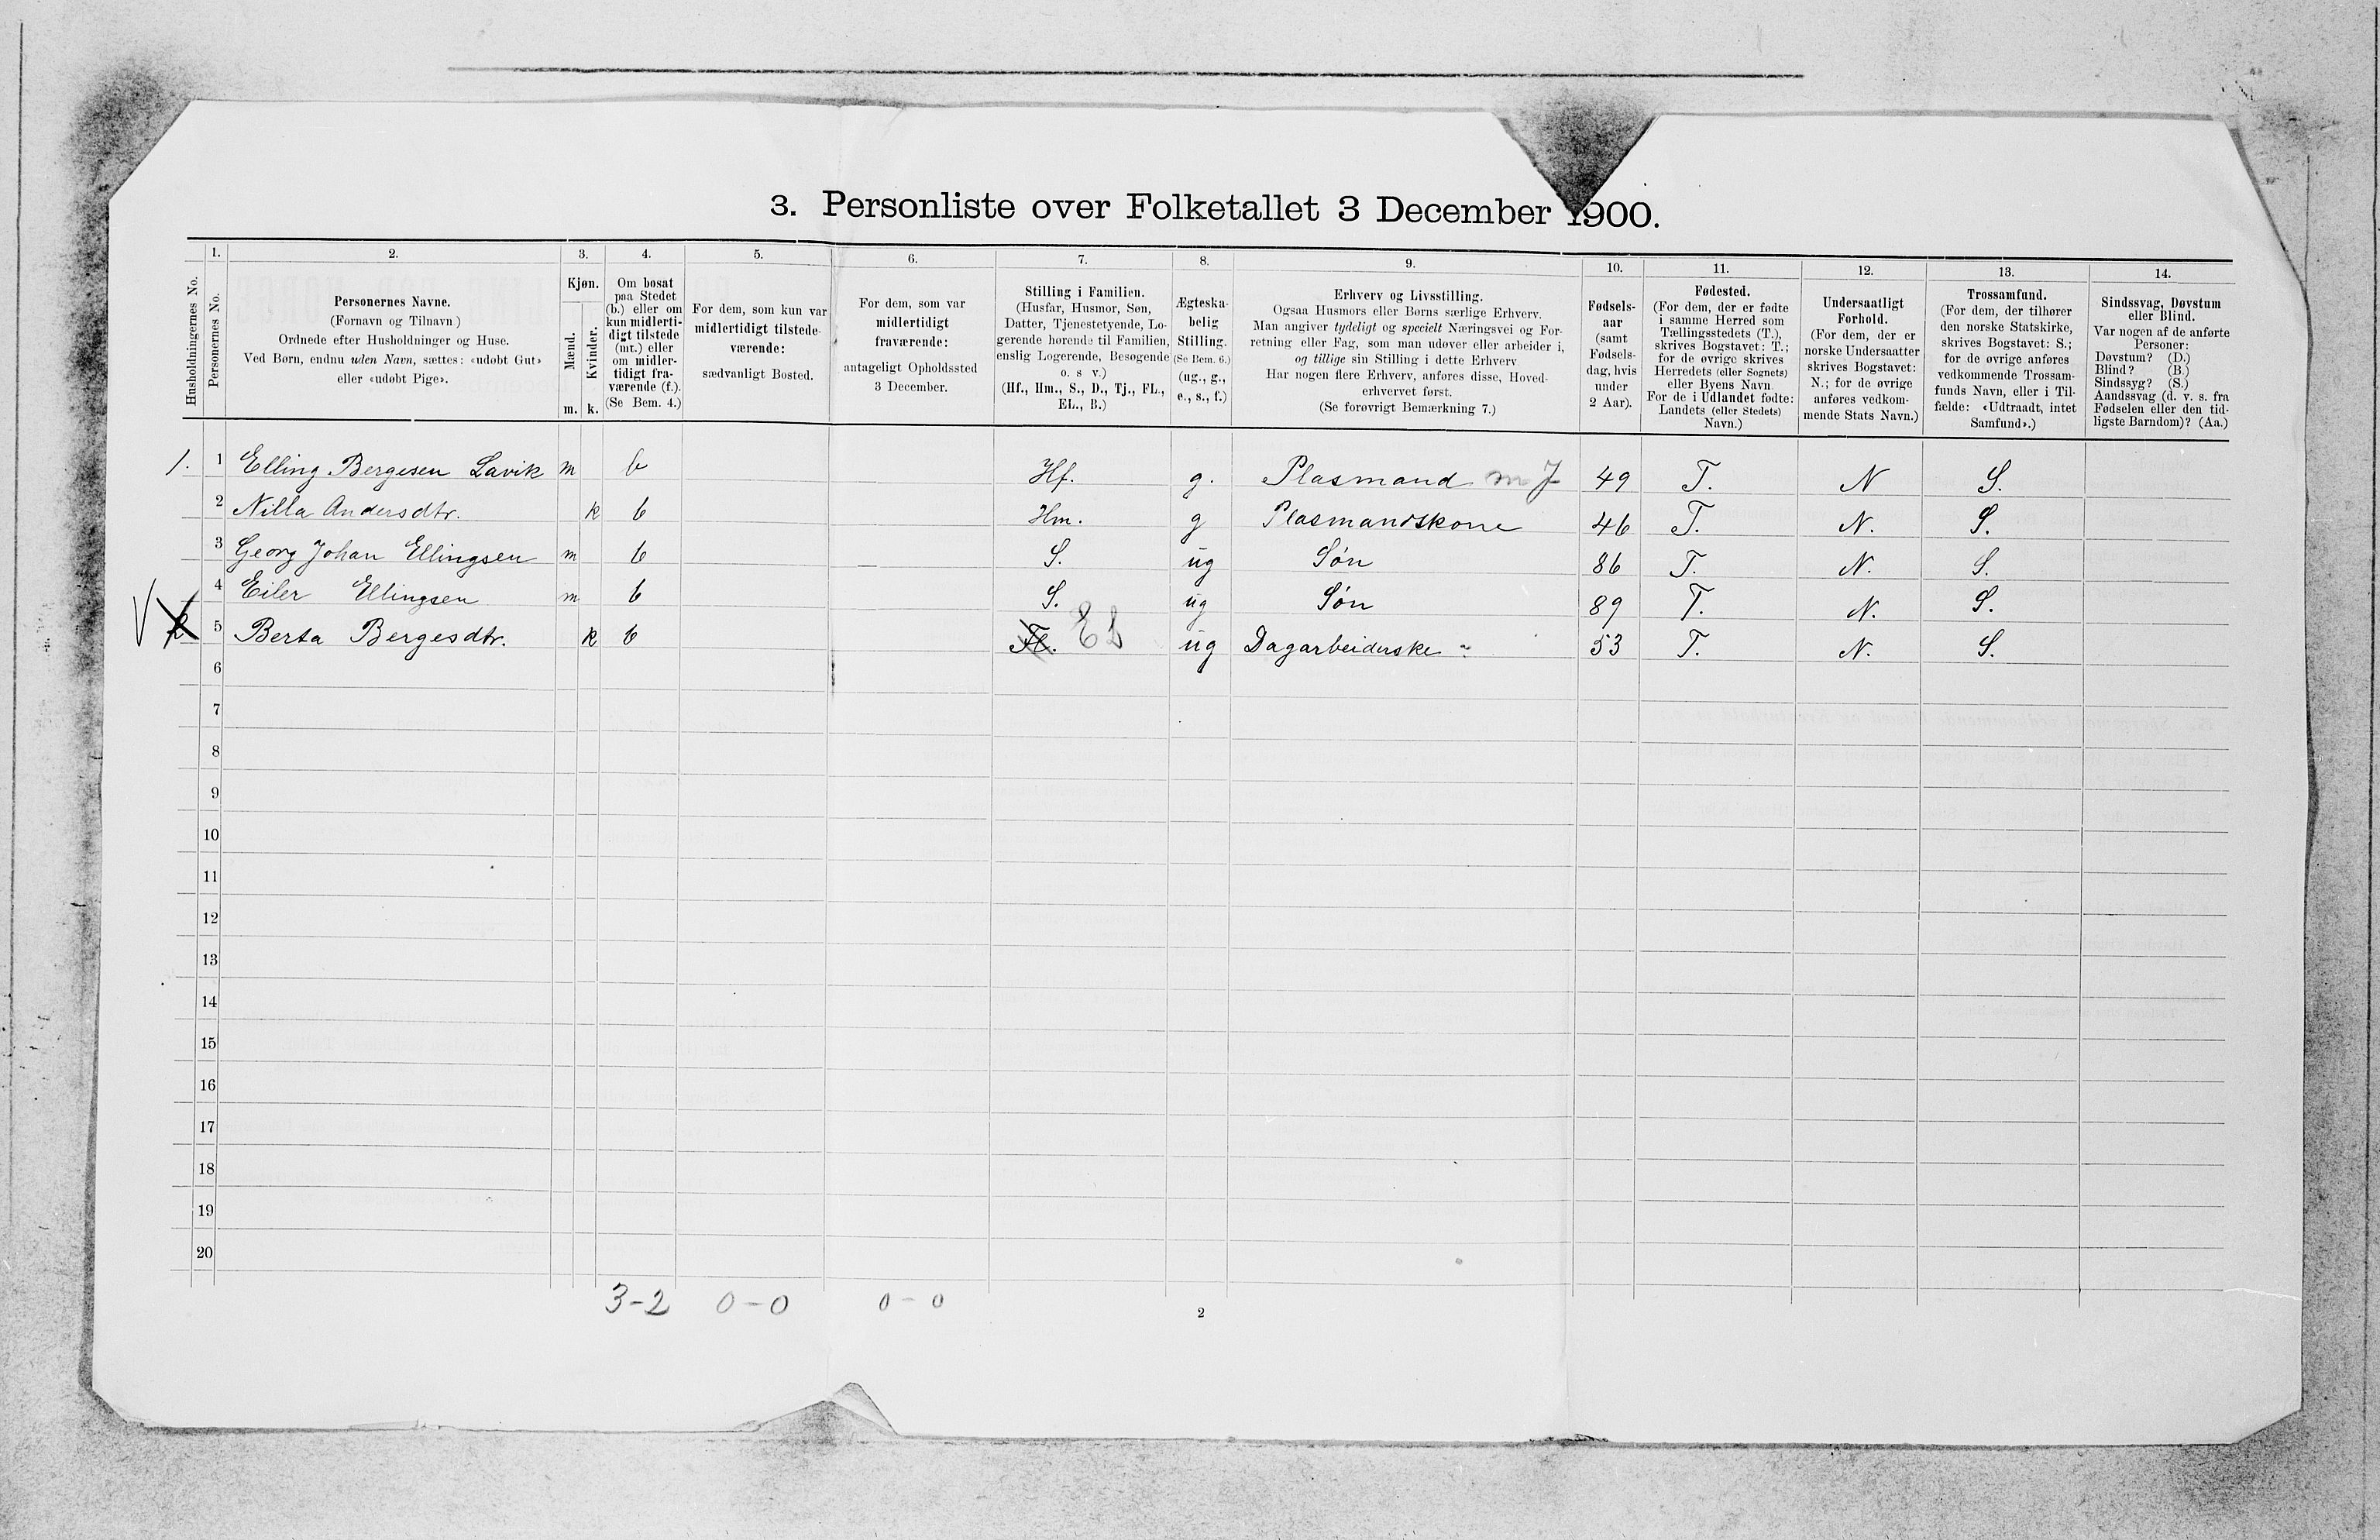 3. Personliste over Folketallet 3 December 1900.
1. 2. 3. 4. 5. 6. 7. 8. 9. 10. 11. 12. 13. 14.
Husholdningernes No.
Personernes No.
Personernes Navne.
(Fornavn og Tilnavn)
Ordnede efter Husholdninger og Huse.
Ved Børn, endnu uden Navn, sættes: «udøbt Gut»
eller «udøbt Pige».
Kjøn.
Mænd.
Kvinder.
m. k.
Om bosat
paa Stedet
(b.) eller om
kun midlerti-
digt tilstede
(mt.) eller
om midler-
tidigt fra-
værende (f.).
(Se Bem. 4.)
For dem, som kun var
midlertidigt tilstede-
værende:
sædvanligt Bosted.
For dem, som var
midlertidigt
fraværende:
antageligt Opholdssted
3 December.
Stilling i Familien.
(Husfar, Husmor, Søn,
Datter, Tjenestetyende, Lo-
gerende hørende til Familien,
enslig Logerende, Besøgende
o. s v.)
(Hf., Hm., S., D., Tj., FL.,
EL., B.)
Ægteska-
belig
Stilling.
(Se Bem. 6.)
(ug., g.,
e., s., f.)
Erhverv og Livsstilling.
Ogsaa Husmors eller Børns særlige Erhverv.
Man angiver tydeligt og specielt Næringsvei og For-
retning eller Fag, som man udøver eller arbeider i,
og tillige sin Stilling i dette Erhverv.
Har nogen flere Erhverv, anføres disse, Hoved-
erhvervet først.
(Se forøvrigt Bemærkning 7.)
Fødsels-
aar
(samt
Fødsels-
dag, hvis
under
2 Aar).
Fødested.
(For dem, der er fødte
i samme Herred som
Tællingsstedets (T.),
skrives Bogstavet: T.;
for de øvrige skrives
Herredets (eller Sognets)
eller Byens Navn.
For de i Udlandet fødte:
Landets (eller Stedets)
Navn.)
Undersaatligt
Forhold.
(For dem, der er
norske Undersaatter
skrives Bogstavet:
N.; for de øvrige
anføres vedkom-
mende Stats Navn.)
Trossamfund.
(For dem, der tilhører
den norske Statskirke,
skrives Bogstavet: S.;
for de øvrige anføres
vedkommende Trossam-
funds Navn, eller i Til-
fælde: «Udtraadt, intet
Samfund».)
Sindssvag, Døvstum
eller Blind.
Var nogen af de anførte
Personer:
Døvstum? (D.)
Blind? (B.)
Sindssyg? (S.)
Aandssvag (d. v. s. fra
Fødselen eller den tid-
ligste Barndom)? (Aa.)
1. 1 Elling Bergesen Lavik m b Hf. g. Plasmand m J 49 T. N S.
2 Nilla Andersdtr. k b Hm. g Plasmandskone 46 T. N. S.
3 Georg Johan Ellingsen m b — S. ug Søn 86 T. N. S.
4 Eiler Ellingsen m b S. ug Søn 89 T. N. S.
V 2 5 Berta Bergesdtr. k b Fl. EL ug Dagarbeiderske 53 T. N. S.
6
7
8
9
10
11
12
13
14
15
16
17
18
19
20
3-2 0-0 0-0
2